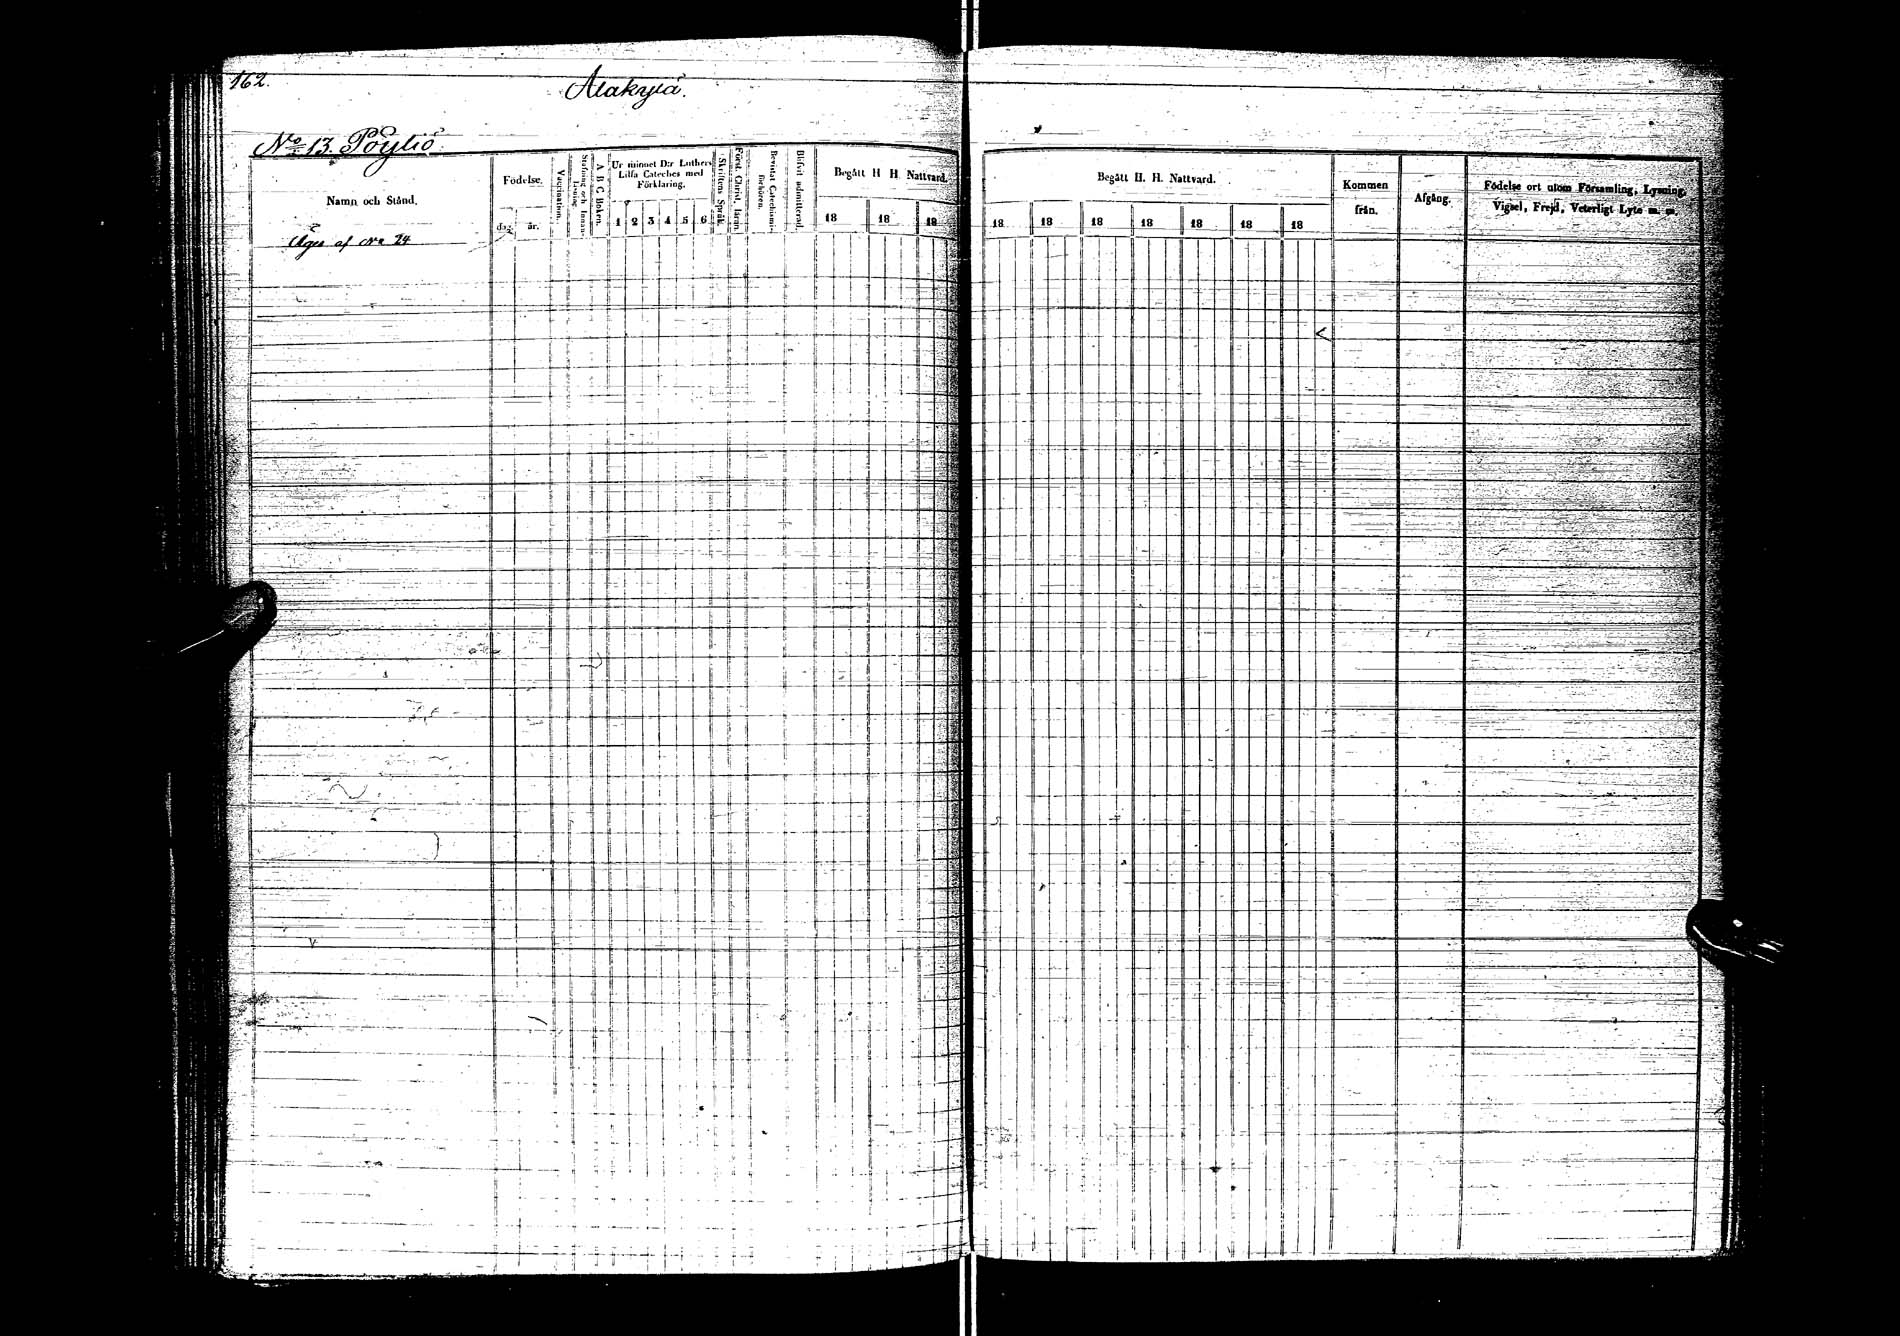 162.
Alakylä.
No 13. Pöyliö
Namn och Stånd.
Födelse.
dag.
år.
Vaccination.
Stafning och Innan-
Läsning
A B C Boken.
Ur minnet D:r Luthers
Lilla Cateches med
Förklaring.
1 2 3 4 5 6
Skriftens Språk.
Först. Christ. läran.
Bevistat Catechismi-
förhören.
Blifvit admitterad.
Begått H. H. Nattvard.
18 18 18
Äges af No 24
Begått H. H. Nattvard.
18 18 18 18 18 18 18
Kommen
från.
Afgång.
Födelse ort utom Församling, Lysning,
Vigsel, Frejd, Veterligt Lyte m. m.